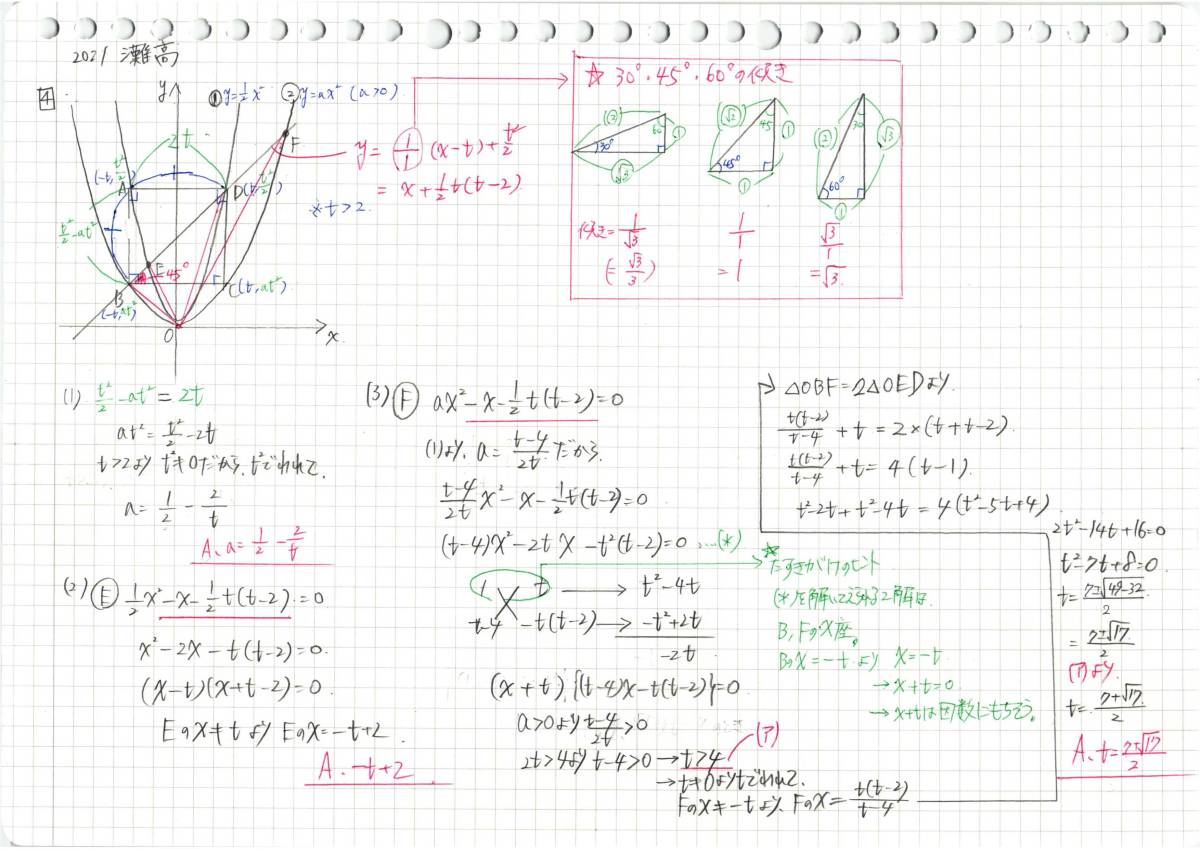 2021 灘高
4
y
① y=1/2x²
② y=ax² (a>0)
2t
F
(-t, t²/2)
A
D(t, t²/2)
※t>2
t²/2-at²
E
45°
B
(-t, at²)
C(t, at²)
O
x
y= 1/1 (x-t)+t²/2
= x+1/2t(t-2)
☆ 30°・45°・60°の傾き
② 60° ① 30° √3
√2 45° ① 45° ①
② 30 √3 60° ①
傾き=1/√3 1/1 √3/1
(=√3/3) =1 =√3
(1) t²/2-at²=2t
at²=t²/2-2t
t>2より t²≠0だから、t²でわれて、
a=1/2-2/t
A、a=1/2-2/t
(2) Ⓔ 1/2x²-x-1/2t(t-2)=0
x²-2x-t(t-2)=0
(x-t)(x+t-2)=0
Eのx≠tより Eのx=-t+2
A、-t+2
(3) Ⓕ ax²-x-1/2t(t-2)=0
(1)より、a=t-4/2t だから
t-4/2t x²-x-1/2t(t-2)=0
(t-4)x²-2tx-t²(t-2)=0 …(*)
1 t → t²-4t
t-4 -t(t-2) → -t²+2t
-2t
(x+t){(t-4)x-t(t-2)}=0
a>0より t-4/2t>0
2t>4より t-4>0 → t>4 (ア)
→t≠0よりtでわれて、
Fのx≠-tより、Fのx= t(t-2)/t-4
☆たすきがけのヒント
(*)を解いてえられる2解は
B, Fのx座。
Bのx=-tより x=-t
→x+t=0
→x+tは因数にもちそう。
△OBF=2△OEDより
t(t-2)/t-4+t=2×(t+t-2)
t(t-2)/t-4+t=4(t-1)
t²-2t+t²-4t=4(t²-5t+4)
2t²-14t+16=0
t²-7t+8=0
t=7±√49-32/2
=7±√17/2
(ア)より
t=7+√17/2
A、t=7+√17/2